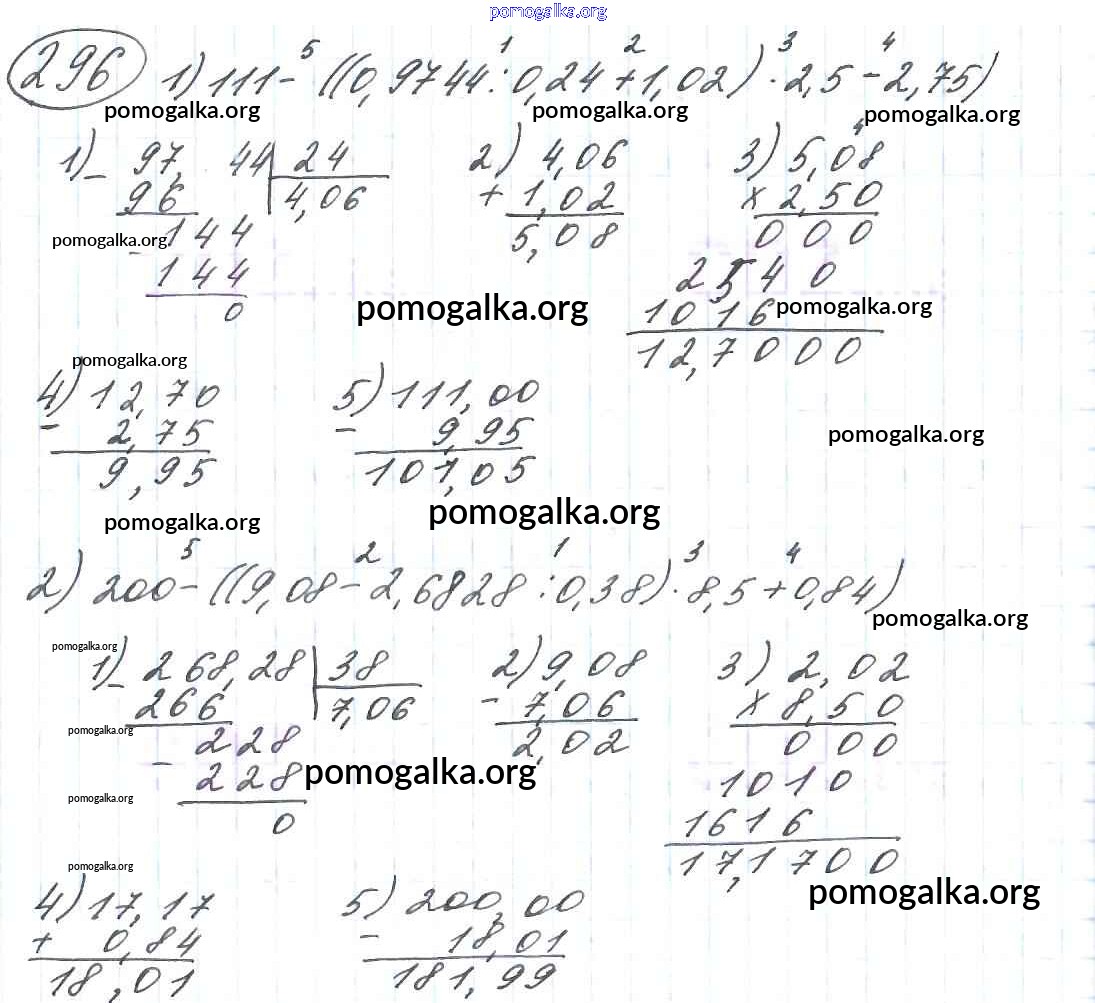 pomogalka.org
296 1) 111 - ((0,9744 : 0,24 + 1,02) · 2,5 - 2,75)
5 1 2 3 4
pomogalka.org pomogalka.org pomogalka.org
1) 97,44 24 2) 4,06 3) 5,08
4
- 96 4,06 + 1,02 x 2,50
144 5,08 000
pomogalka.org
- 144 2540
0 pomogalka.org 1016 pomogalka.org
12,7000
pomogalka.org
4) 12,70 5) 111,00
- 2,75 - 9,95 pomogalka.org
9,95 101,05
pomogalka.org pomogalka.org
5 2 1 3 4
2) 200 - ((9,08 - 2,6828 : 0,38) · 8,5 + 0,84)
pomogalka.org
pomogalka.org
1) 268,28 38 2) 9,08 3) 2,02
- 266 7,06 - 7,06 x 8,50
pomogalka.org
228 2,02 000
- 228 pomogalka.org 1010
pomogalka.org
0 1616
17,1700
pomogalka.org
pomogalka.org
4) 17,17 5) 200,00
+ 0,84 - 18,01
18,01 181,99